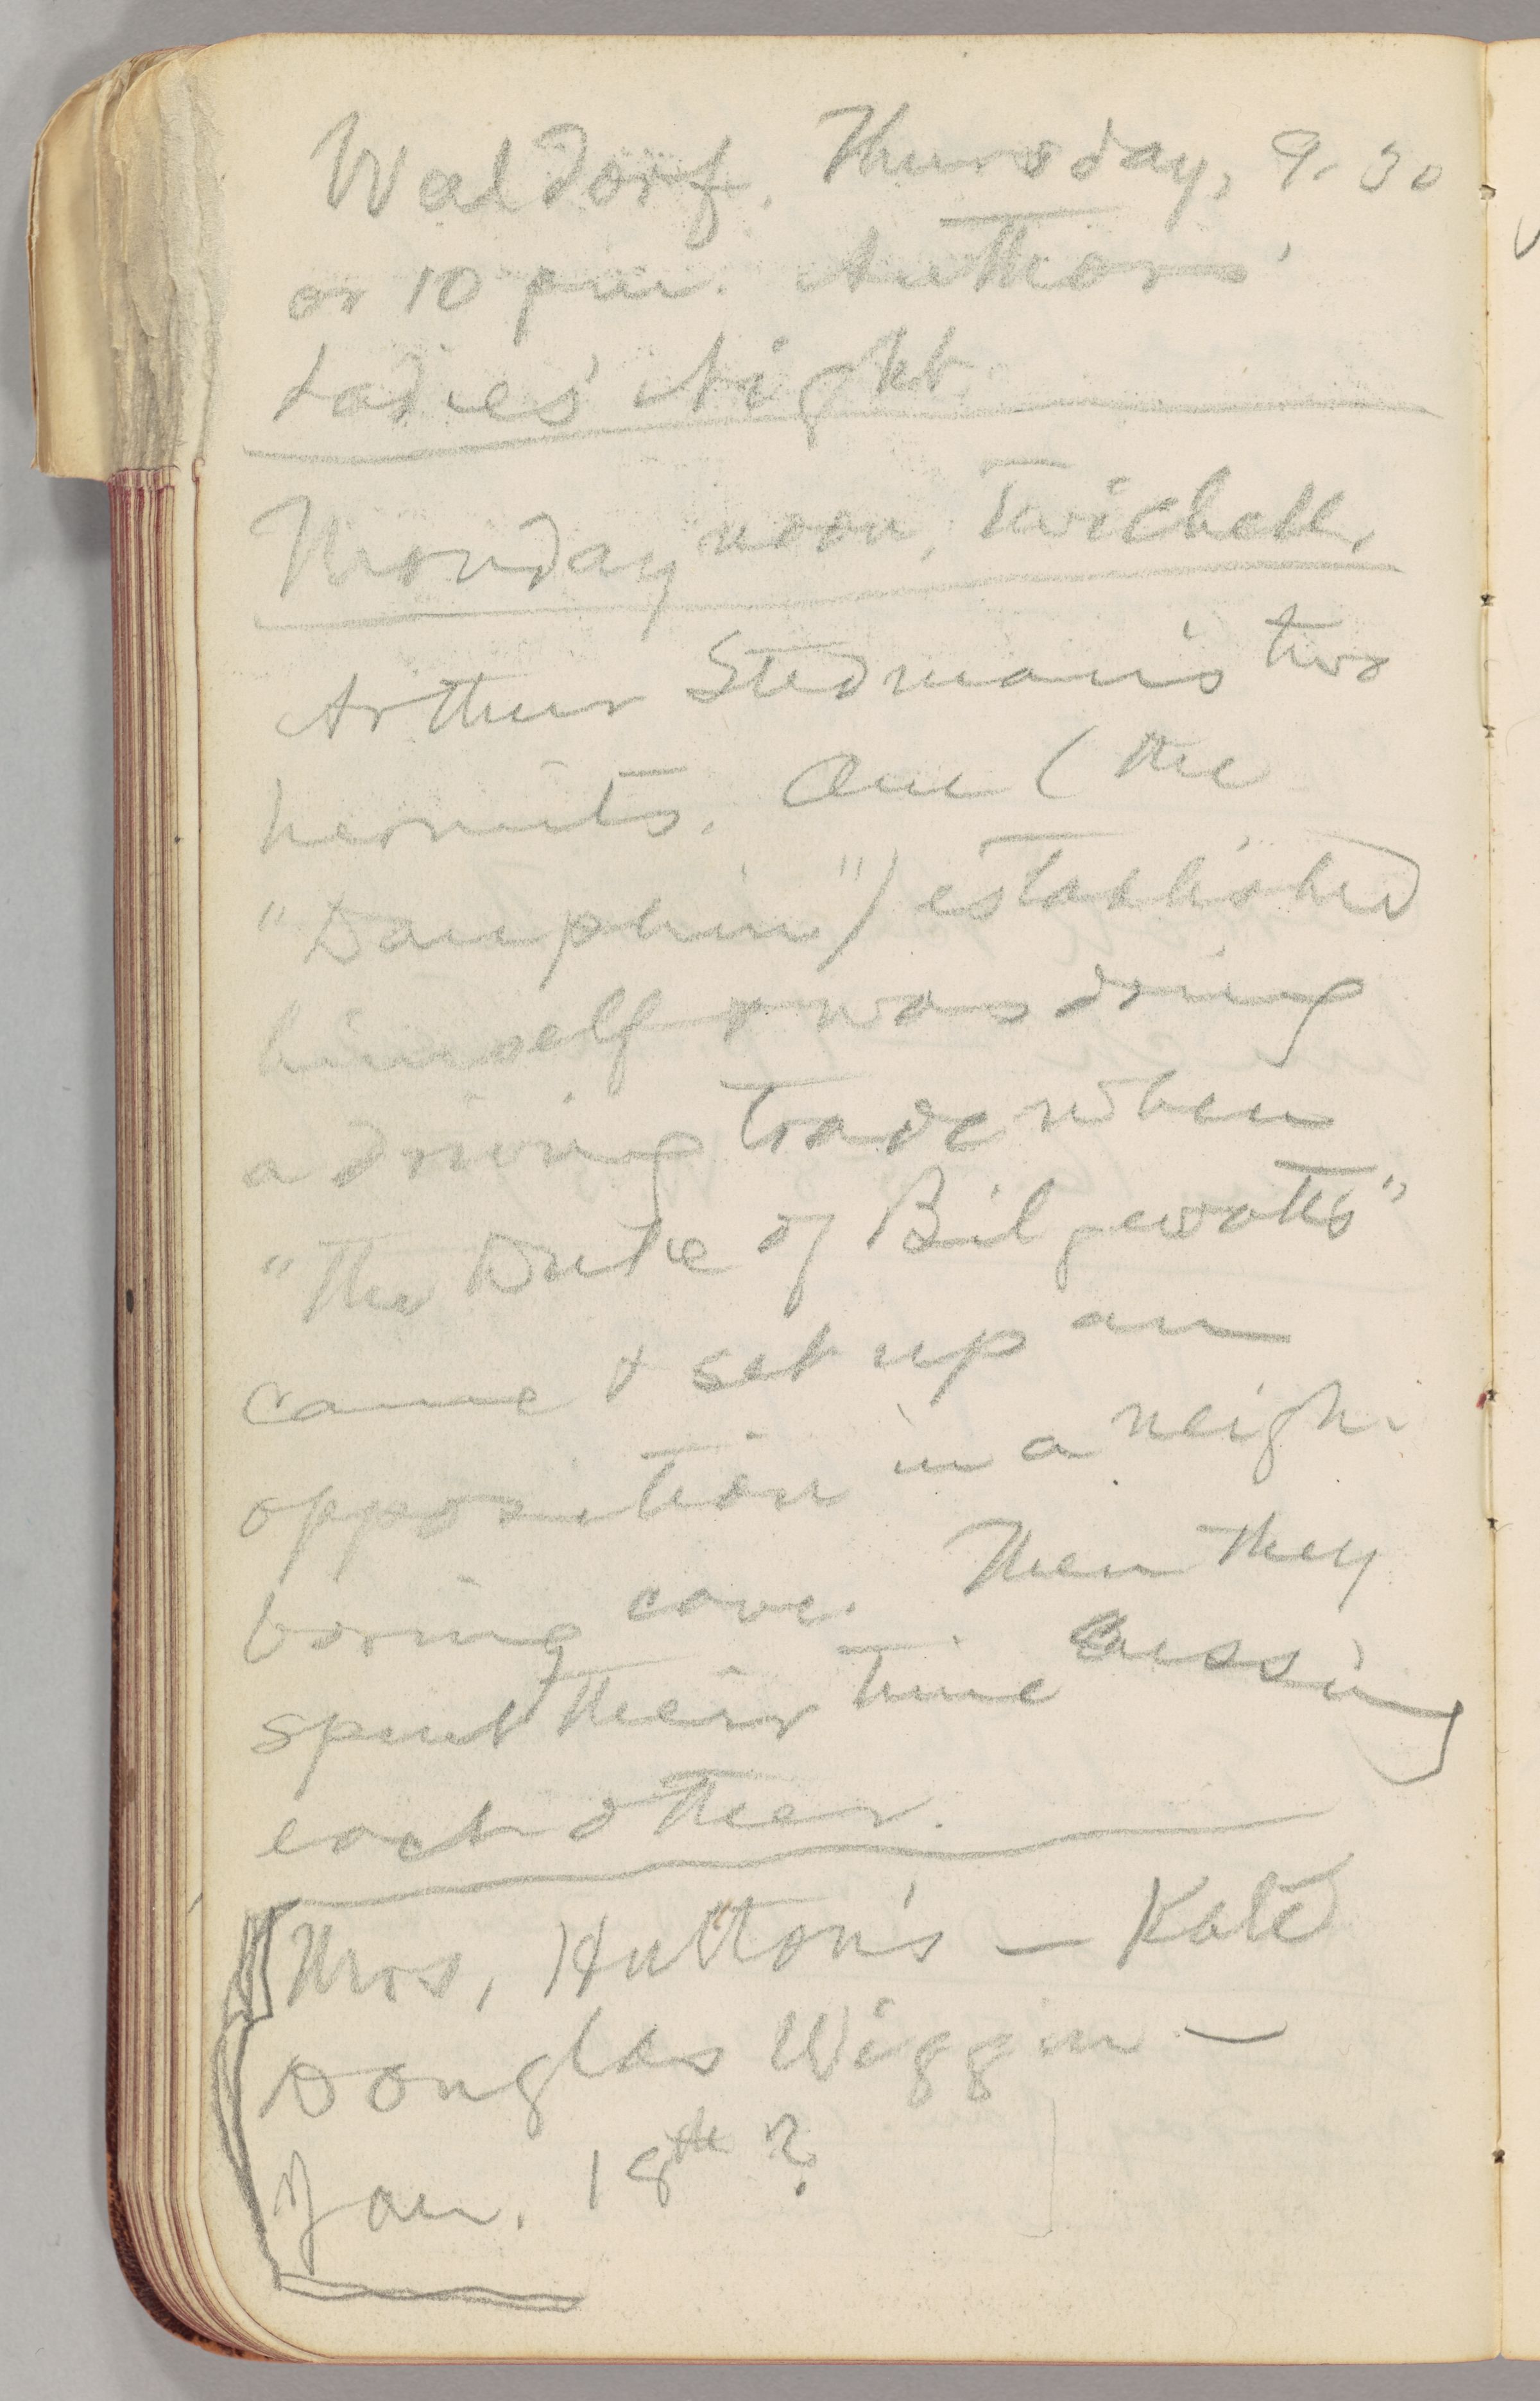 Waldorf. Thursday, 9.30
or 10 pm. Authors'
Ladies' Night.
Monday noon, Twichell.
Arthur Stedman's two
hermits. One (the
"Dauphin") established
himself & was doing
a driving trade when
"The Duke of Bilgewatts"
came & set up an
opposition in a neigh-
boring cave. Then they
spent their time cussing
each other.
Mrs. Hutton's — Kate
Douglas Wiggin —
Jan. 18th?